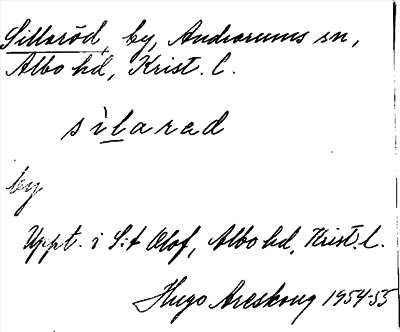 Sillaröd, by, Andrarums sn,
Albo hd, Krist. l.
sìlarad
by
Uppt. i S:t Olof, Albo hd, Krist. l.
Hugo Areskoug 1954-55